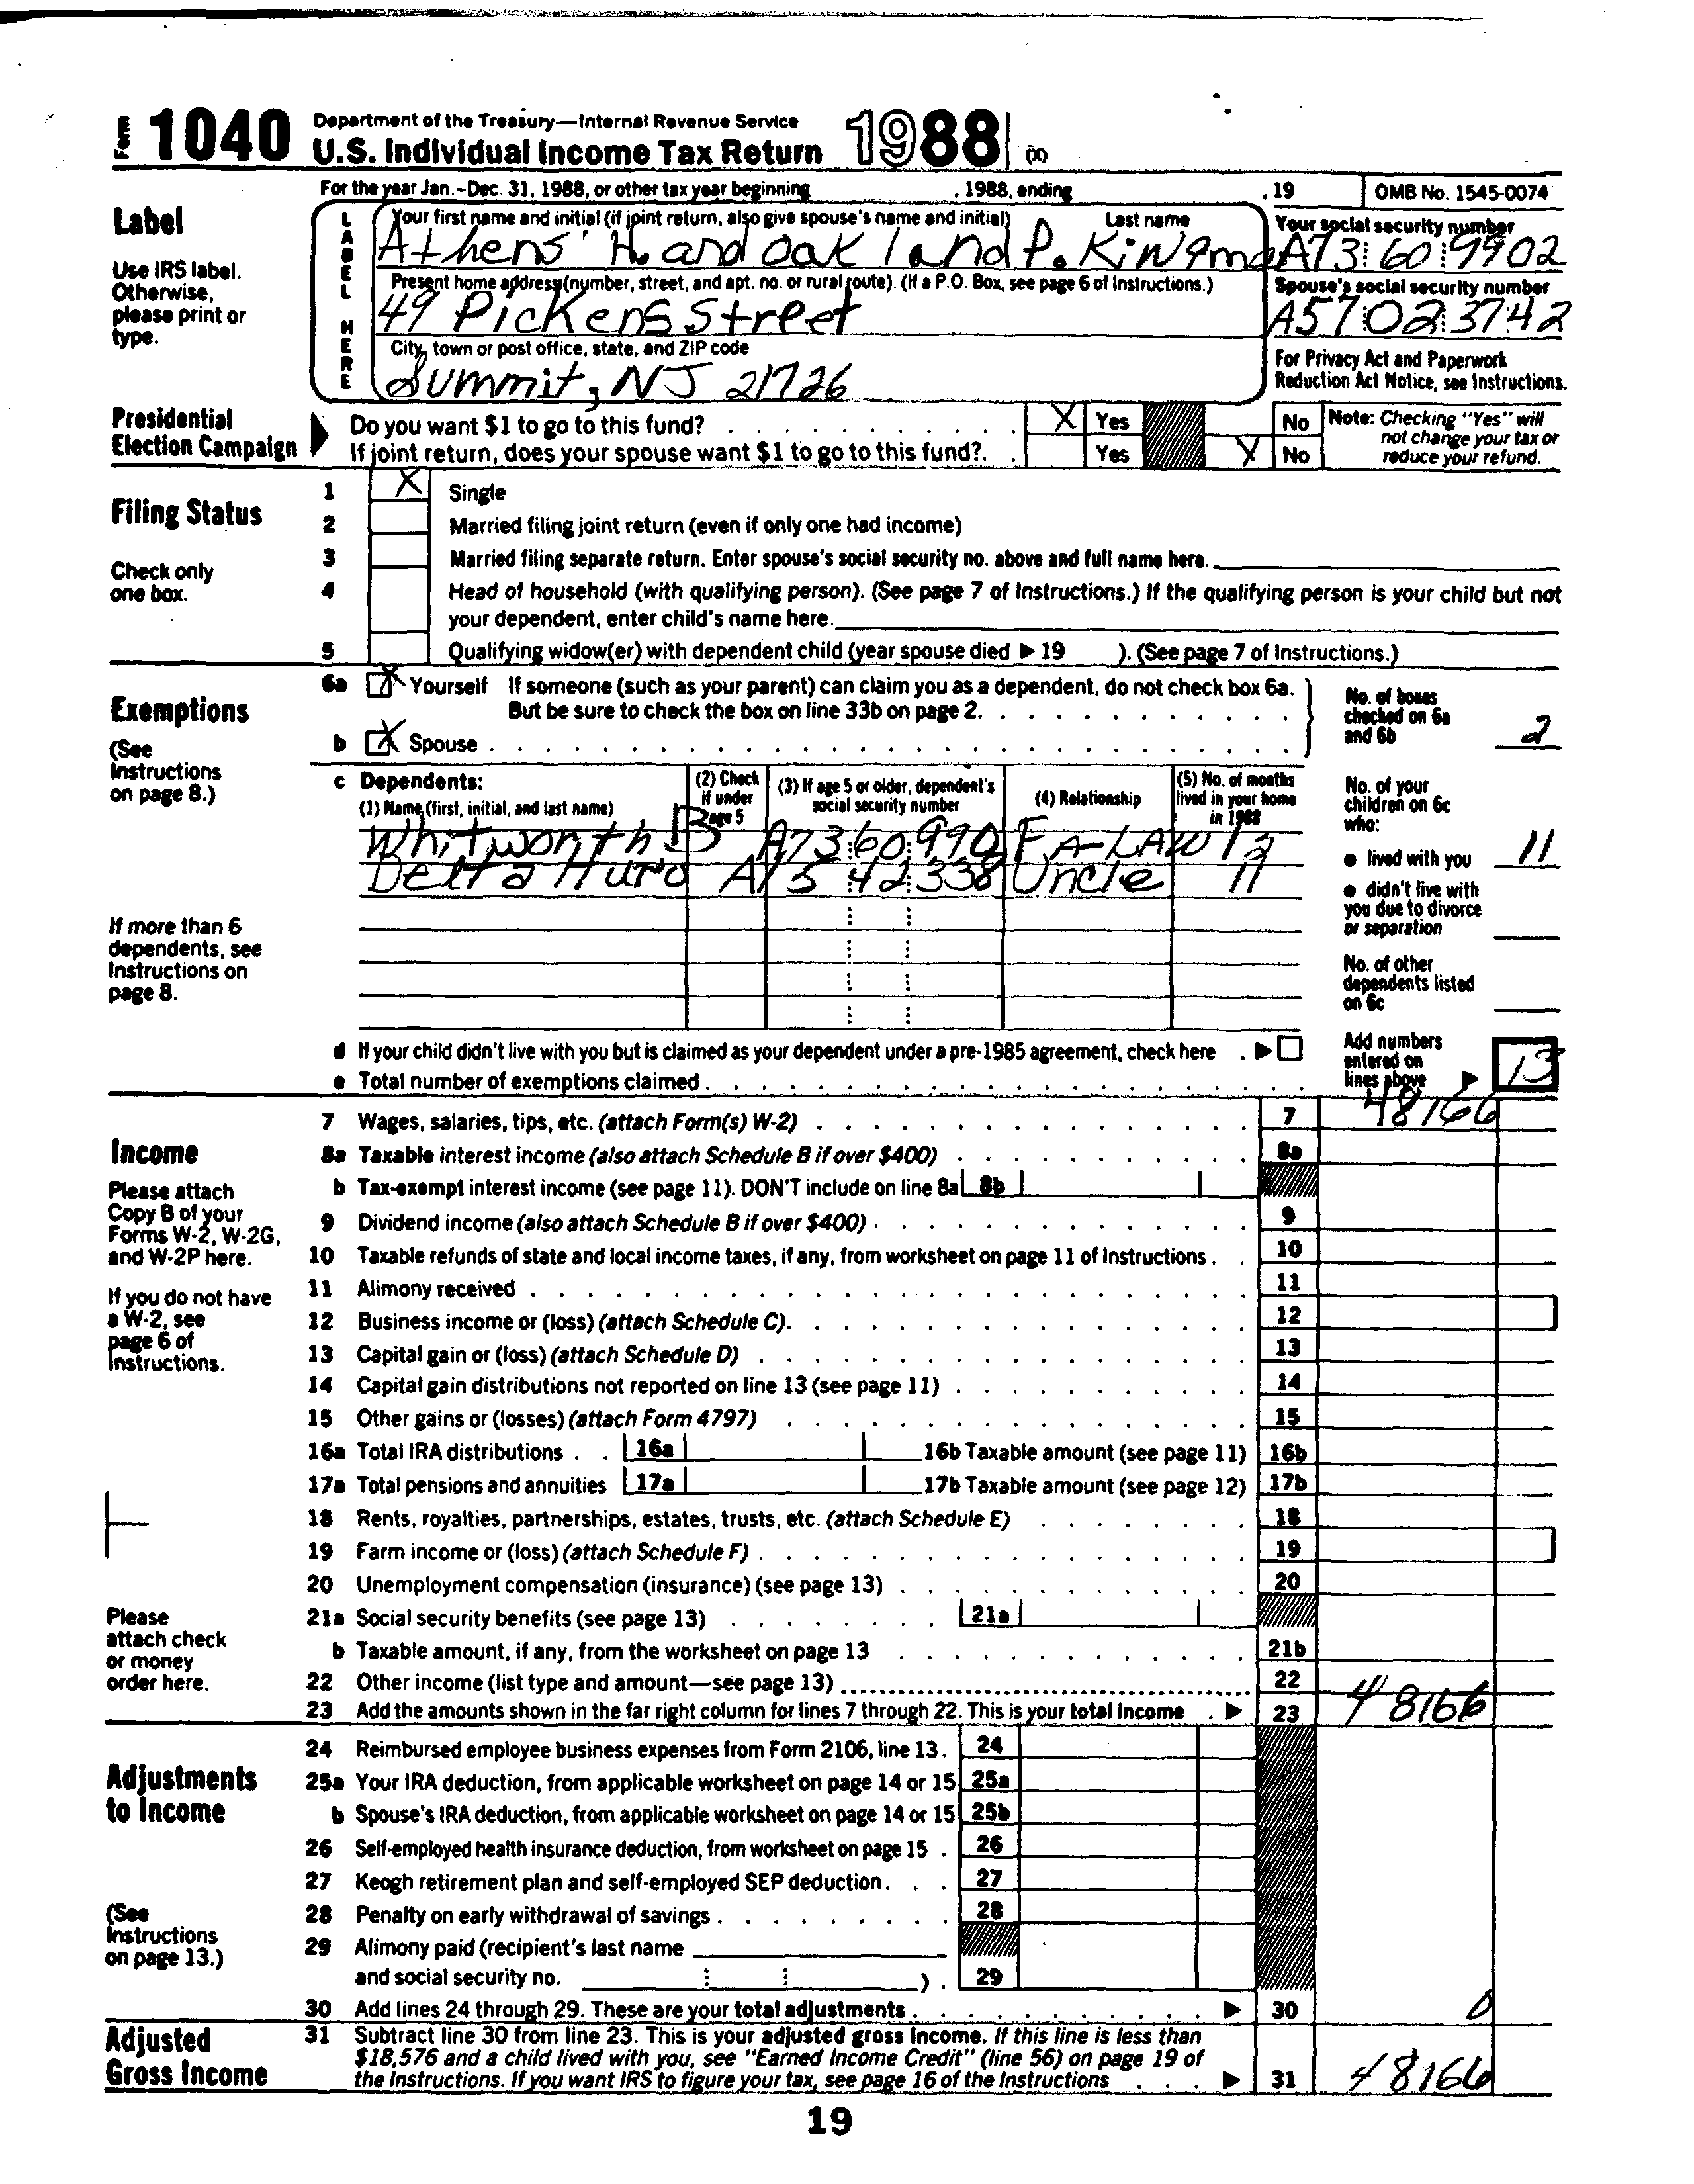 Form 1040 Department of the Treasury—Internal Revenue Service
U.S. Individual Income Tax Return 1988 (X)
For the year Jan.-Dec. 31, 1988, or other tax year beginning , 1988, ending , 19 OMB No. 1545-0074
Label
Use IRS label. Otherwise, please print or type.
LABEL HERE
Your first name and initial (if joint return, also give spouse's name and initial) Last name
Athens H. and Oakland P.
Your social security number
A73 60 9902
Present home address (number, street, and apt. no. or rural route). (If a P.O. Box, see page 6 of Instructions.)
49 Pickens Street
Spouse's social security number
A57 02 3742
City, town or post office, state, and ZIP code
Summit, NJ 21726
For Privacy Act and Paperwork Reduction Act Notice, see Instructions.
Presidential Election Campaign
Do you want $1 to go to this fund? . . . X Yes No
If joint return, does your spouse want $1 to go to this fund?. . Yes X No
Note: Checking "Yes" will not change your tax or reduce your refund.
Filing Status
Check only one box.
1 X Single
2 Married filing joint return (even if only one had income)
3 Married filing separate return. Enter spouse's social security no. above and full name here.
4 Head of household (with qualifying person). (See page 7 of Instructions.) If the qualifying person is your child but not
your dependent, enter child's name here.
5 Qualifying widow(er) with dependent child (year spouse died ▶ 19 ). (See page 7 of Instructions.)
Exemptions
(See Instructions on page 8.)
6a X Yourself If someone (such as your parent) can claim you as a dependent, do not check box 6a.
But be sure to check the box on line 33b on page 2.
b X Spouse
No. of boxes checked on 6a and 6b 2
c Dependents:
(1) Name (first, initial, and last name) (2) Check if under age 5 (3) If age 5 or older, dependent's social security number (4) Relationship (5) No. of months lived in your home in 1988
Whitworth B A73 60 990 FA-LAW 12
Delta Huro A15 42 338 Uncle 11
If more than 6 dependents, see Instructions on page 8.
No. of your children on 6c who:
● lived with you 11
● didn't live with you due to divorce or separation
No. of other dependents listed on 6c
d If your child didn't live with you but is claimed as your dependent under a pre-1985 agreement, check here . ▶
e Total number of exemptions claimed
Add numbers entered on lines above ▶ 13
Income
Please attach Copy B of your Forms W-2, W-2G, and W-2P here.
If you do not have a W-2, see page 6 of Instructions.
Please attach check or money order here.
7 Wages, salaries, tips, etc. (attach Form(s) W-2) 7 48166
8a Taxable interest income (also attach Schedule B if over $400) 8a
b Tax-exempt interest income (see page 11). DON'T include on line 8a 8b
9 Dividend income (also attach Schedule B if over $400) 9
10 Taxable refunds of state and local income taxes, if any, from worksheet on page 11 of Instructions 10
11 Alimony received 11
12 Business income or (loss) (attach Schedule C). 12
13 Capital gain or (loss) (attach Schedule D) 13
14 Capital gain distributions not reported on line 13 (see page 11) 14
15 Other gains or (losses) (attach Form 4797) 15
16a Total IRA distributions 16a 16b Taxable amount (see page 11) 16b
17a Total pensions and annuities 17a 17b Taxable amount (see page 12) 17b
18 Rents, royalties, partnerships, estates, trusts, etc. (attach Schedule E) 18
19 Farm income or (loss) (attach Schedule F) 19
20 Unemployment compensation (insurance) (see page 13) 20
21a Social security benefits (see page 13) 21a
b Taxable amount, if any, from the worksheet on page 13 21b
22 Other income (list type and amount—see page 13) 22
23 Add the amounts shown in the far right column for lines 7 through 22. This is your total income . ▶ 23 48166
Adjustments to Income
(See Instructions on page 13.)
24 Reimbursed employee business expenses from Form 2106, line 13. 24
25a Your IRA deduction, from applicable worksheet on page 14 or 15 25a
b Spouse's IRA deduction, from applicable worksheet on page 14 or 15 25b
26 Self-employed health insurance deduction, from worksheet on page 15 . 26
27 Keogh retirement plan and self-employed SEP deduction. 27
28 Penalty on early withdrawal of savings 28
29 Alimony paid (recipient's last name
and social security no. ) . 29
30 Add lines 24 through 29. These are your total adjustments ▶ 30 0
Adjusted Gross Income
31 Subtract line 30 from line 23. This is your adjusted gross income. If this line is less than
$18,576 and a child lived with you, see "Earned Income Credit" (line 56) on page 19 of
the Instructions. If you want IRS to figure your tax, see page 16 of the Instructions ▶ 31 48166
19